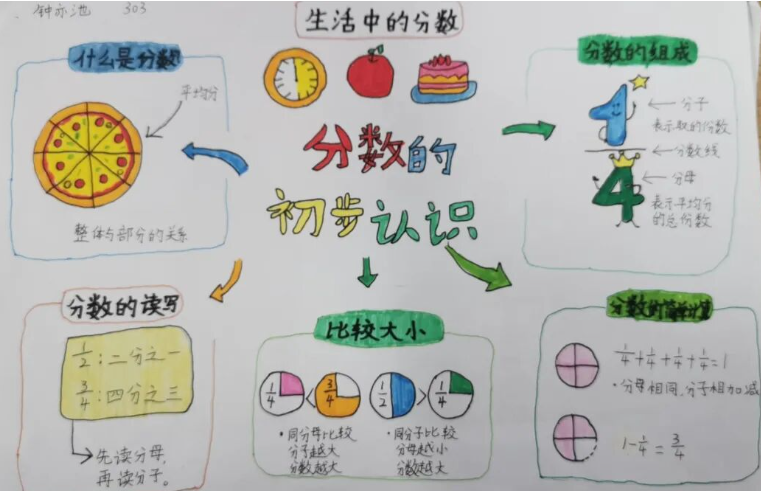 钟亦池 303
生活中的分数
什么是分数
平均分
整体与部分的关系
分数的组成
1
← 分子
表示取的份数
← 分数线
4
← 分母
表示平均分
的总份数
分数的
初步认识
分数的读写
1/2：二分之一
3/4：四分之三
先读分母，
再读分子。
比较大小
1/4 < 3/4
1/2 > 1/4
·同分母比较
分子越大
分数越大
·同分子比较
分母越小
分数越大
分数的简单计算
1/4+1/4+1/4+1/4=1
·分母相同，分子相加减
1-1/4=3/4